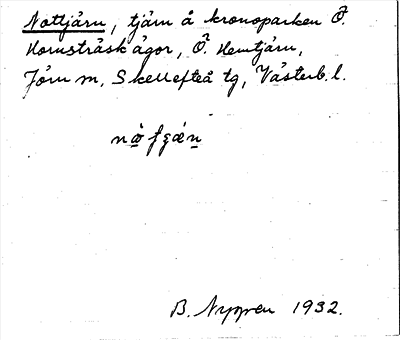 Nottjärn, tjärn å kronoparken Ö.
Hornsträskågor, Ö. Hemtjärn,
Jörn sn, Skellefteå tg, Västerb. l.
B. Nygren 1932.